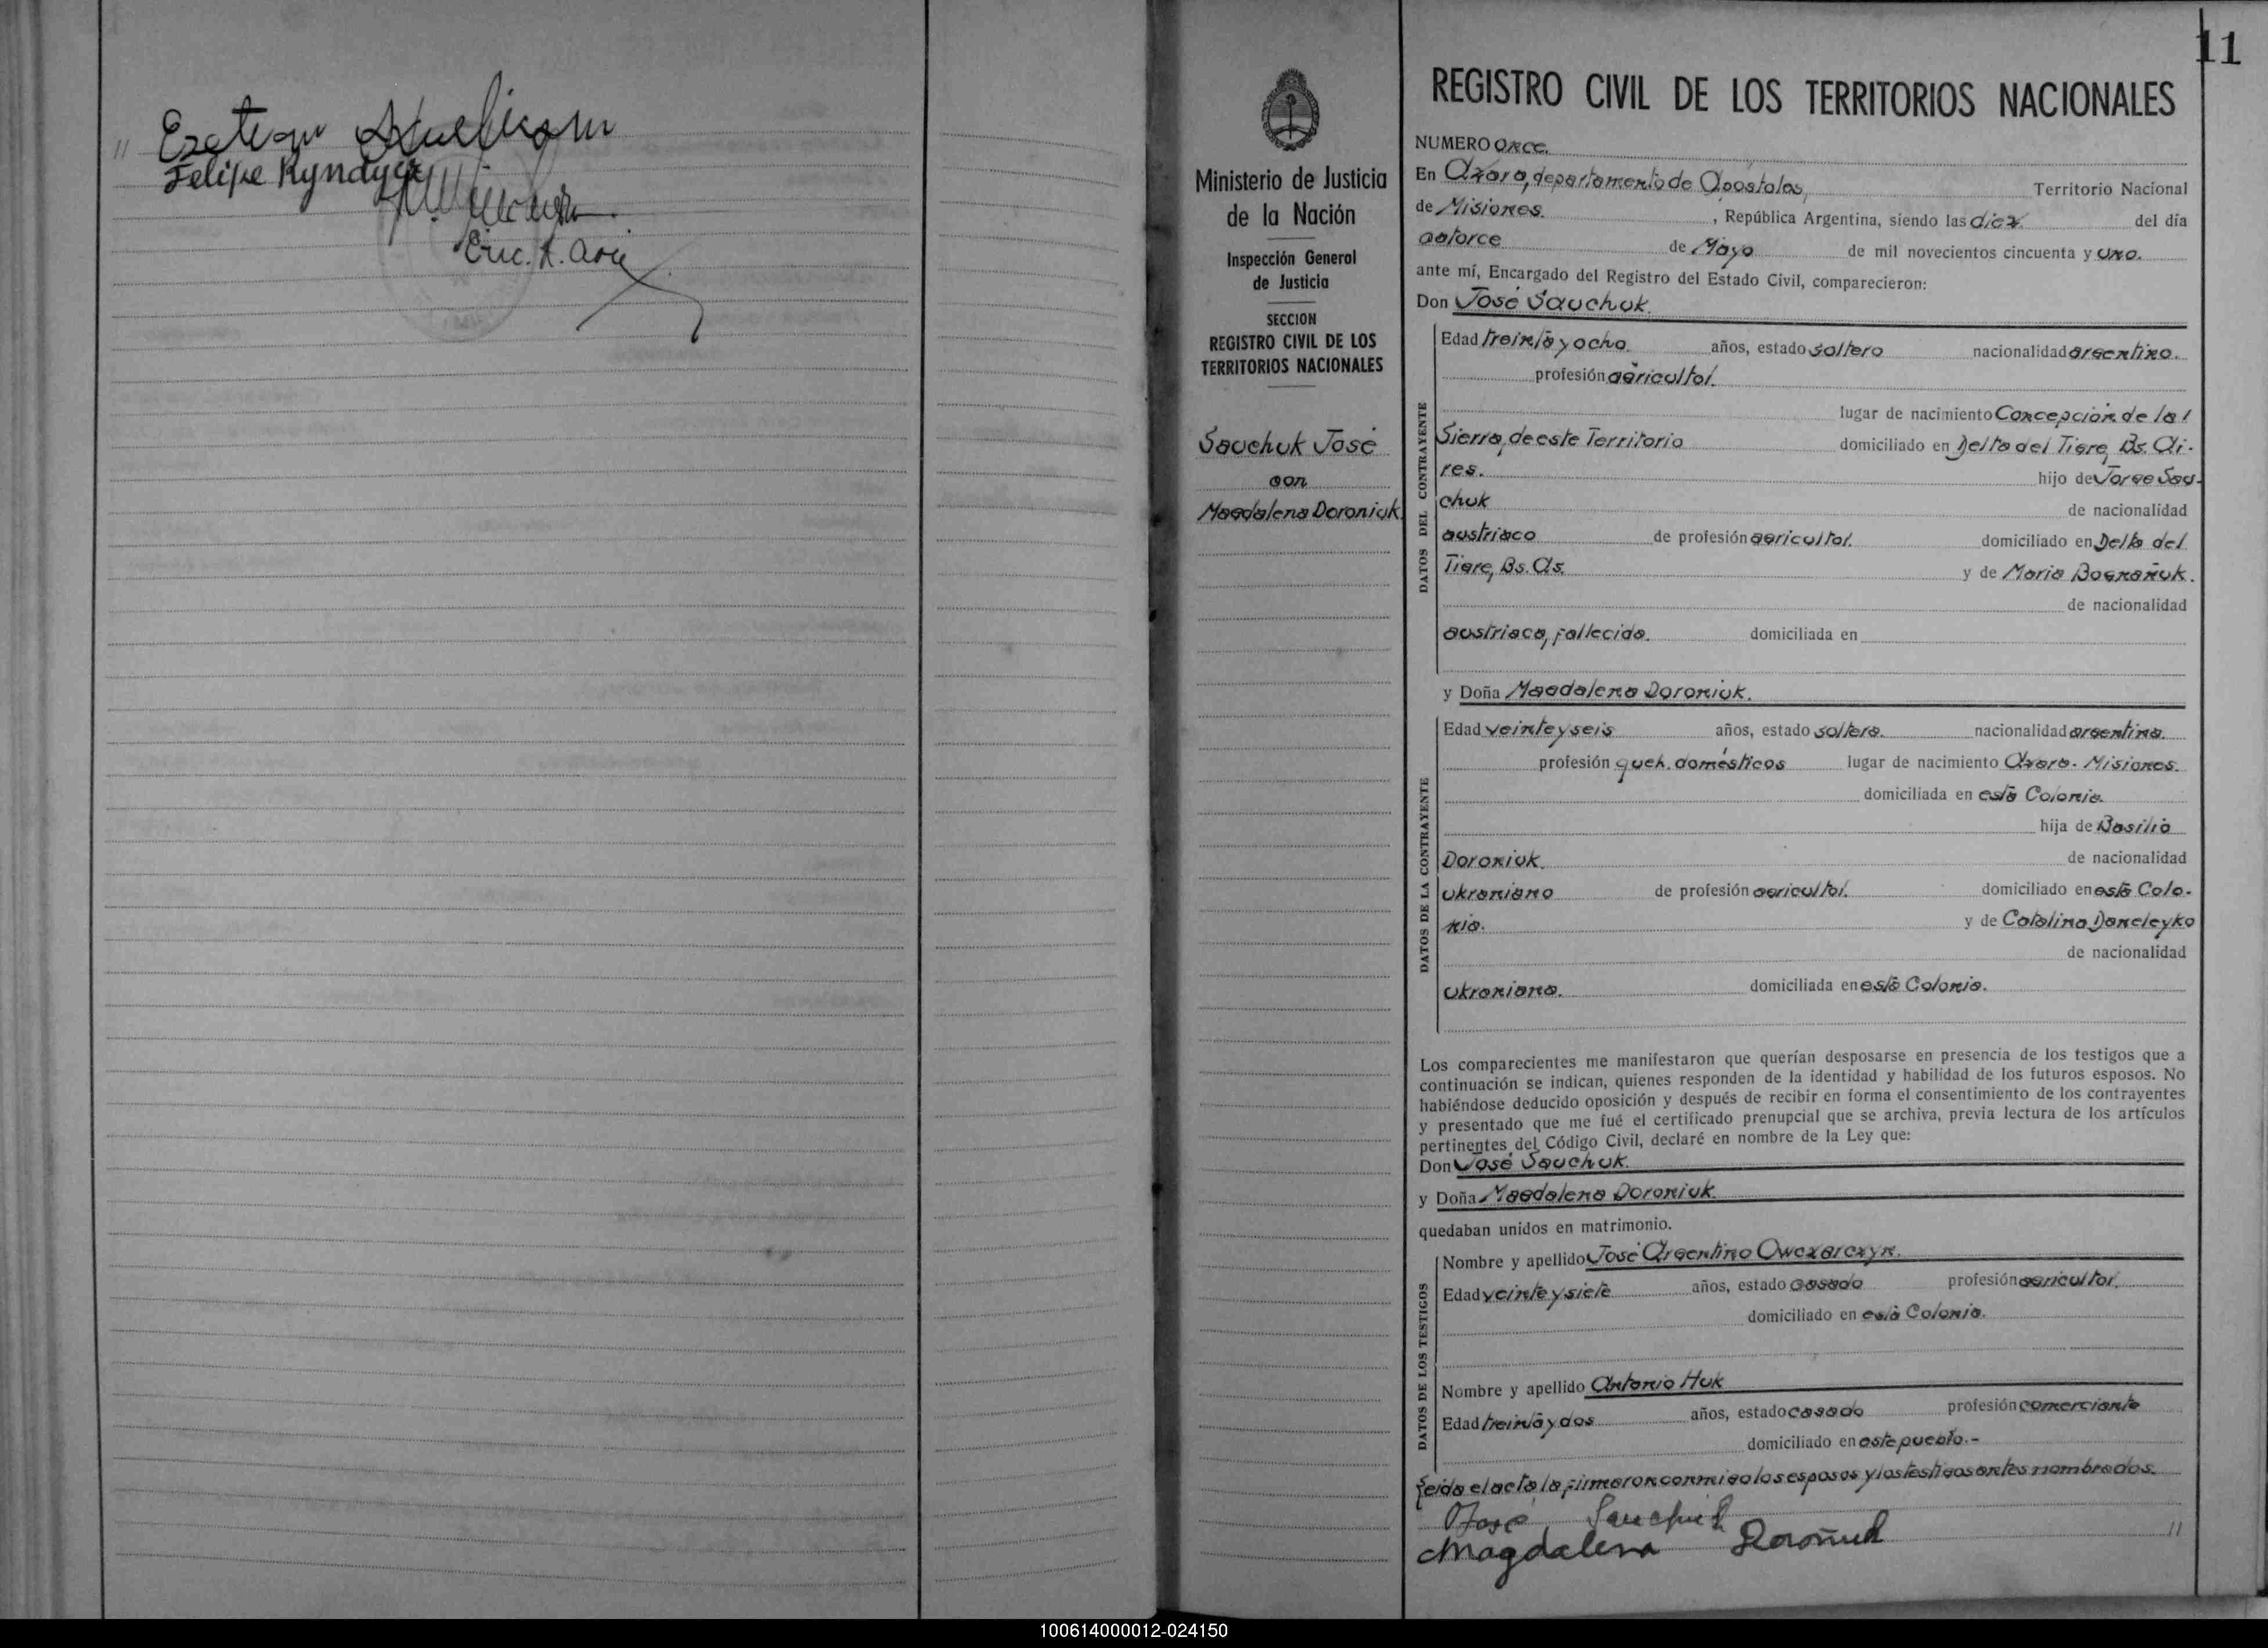 " Esteban
Felipe Kyndyci
Enc. R. Civ.
11
Ministerio de Justicia
de la Nación
Inspección General
de Justicia
SECCION
REGISTRO CIVIL DE LOS
TERRITORIOS NACIONALES
Sauchuk José
con
Magdalena Doroniuk.
REGISTRO CIVIL DE LOS TERRITORIOS NACIONALES
NUMERO once.
En Azara, departamento de Apostoles, Territorio Nacional
de Misiones. , República Argentina, siendo las diez. del día
catorce de Mayo de mil novecientos cincuenta y uno.
ante mí, Encargado del Registro del Estado Civil, comparecieron:
Don José Sauchuk.
DATOS DEL CONTRAYENTE
Edad treinta y ocho. años, estado soltero nacionalidad argentino.
profesión agricultor.
lugar de nacimiento Concepción de la
Sierra, de este Territorio domiciliado en Delta del Tigre, Bs. Ai-
res. hijo de Jorge Sau-
chuk de nacionalidad
austriaco de profesión agricultor. domiciliado en Delta del
Tigre, Bs. As. y de Maria Bognañuk.
de nacionalidad
austriaca, fallecida. domiciliada en
y Doña Magdalena Doroniuk.
DATOS DE LA CONTRAYENTE
Edad veinte y seis años, estado soltera. nacionalidad argentina.
profesión queh. domésticos lugar de nacimiento Azara - Misiones.
domiciliada en esta Colonia.
hija de Basilio
Doroniuk. de nacionalidad
ukraniano de profesión agricultor. domiciliado en esta Colo-
nia. y de Catalina Daneleyko
de nacionalidad
ukraniana. domiciliada en esta Colonia.
Los comparecientes me manifestaron que querían desposarse en presencia de los testigos que a
continuación se indican, quienes responden de la identidad y habilidad de los futuros esposos. No
habiéndose deducido oposición y después de recibir en forma el consentimiento de los contrayentes
y presentado que me fué el certificado prenupcial que se archiva, previa lectura de los artículos
pertinentes del Código Civil, declaré en nombre de la Ley que:
Don José Sauchuk.
y Doña Magdalena Doroniuk.
quedaban unidos en matrimonio.
DATOS DE LOS TESTIGOS
Nombre y apellido José Argentino Owczarczyn.
Edad veinte y siete años, estado casado profesión agricultor.
domiciliado en esta Colonia.
Nombre y apellido Antonio Huk
Edad treinta y dos años, estado casado profesión comerciante
domiciliado en este pueblo.-
Leida el acta la firmaron conmigo los esposos y los testigos antes nombrados.
José Sauchuk
Magdalena Doroñuk "
100614000012-024150